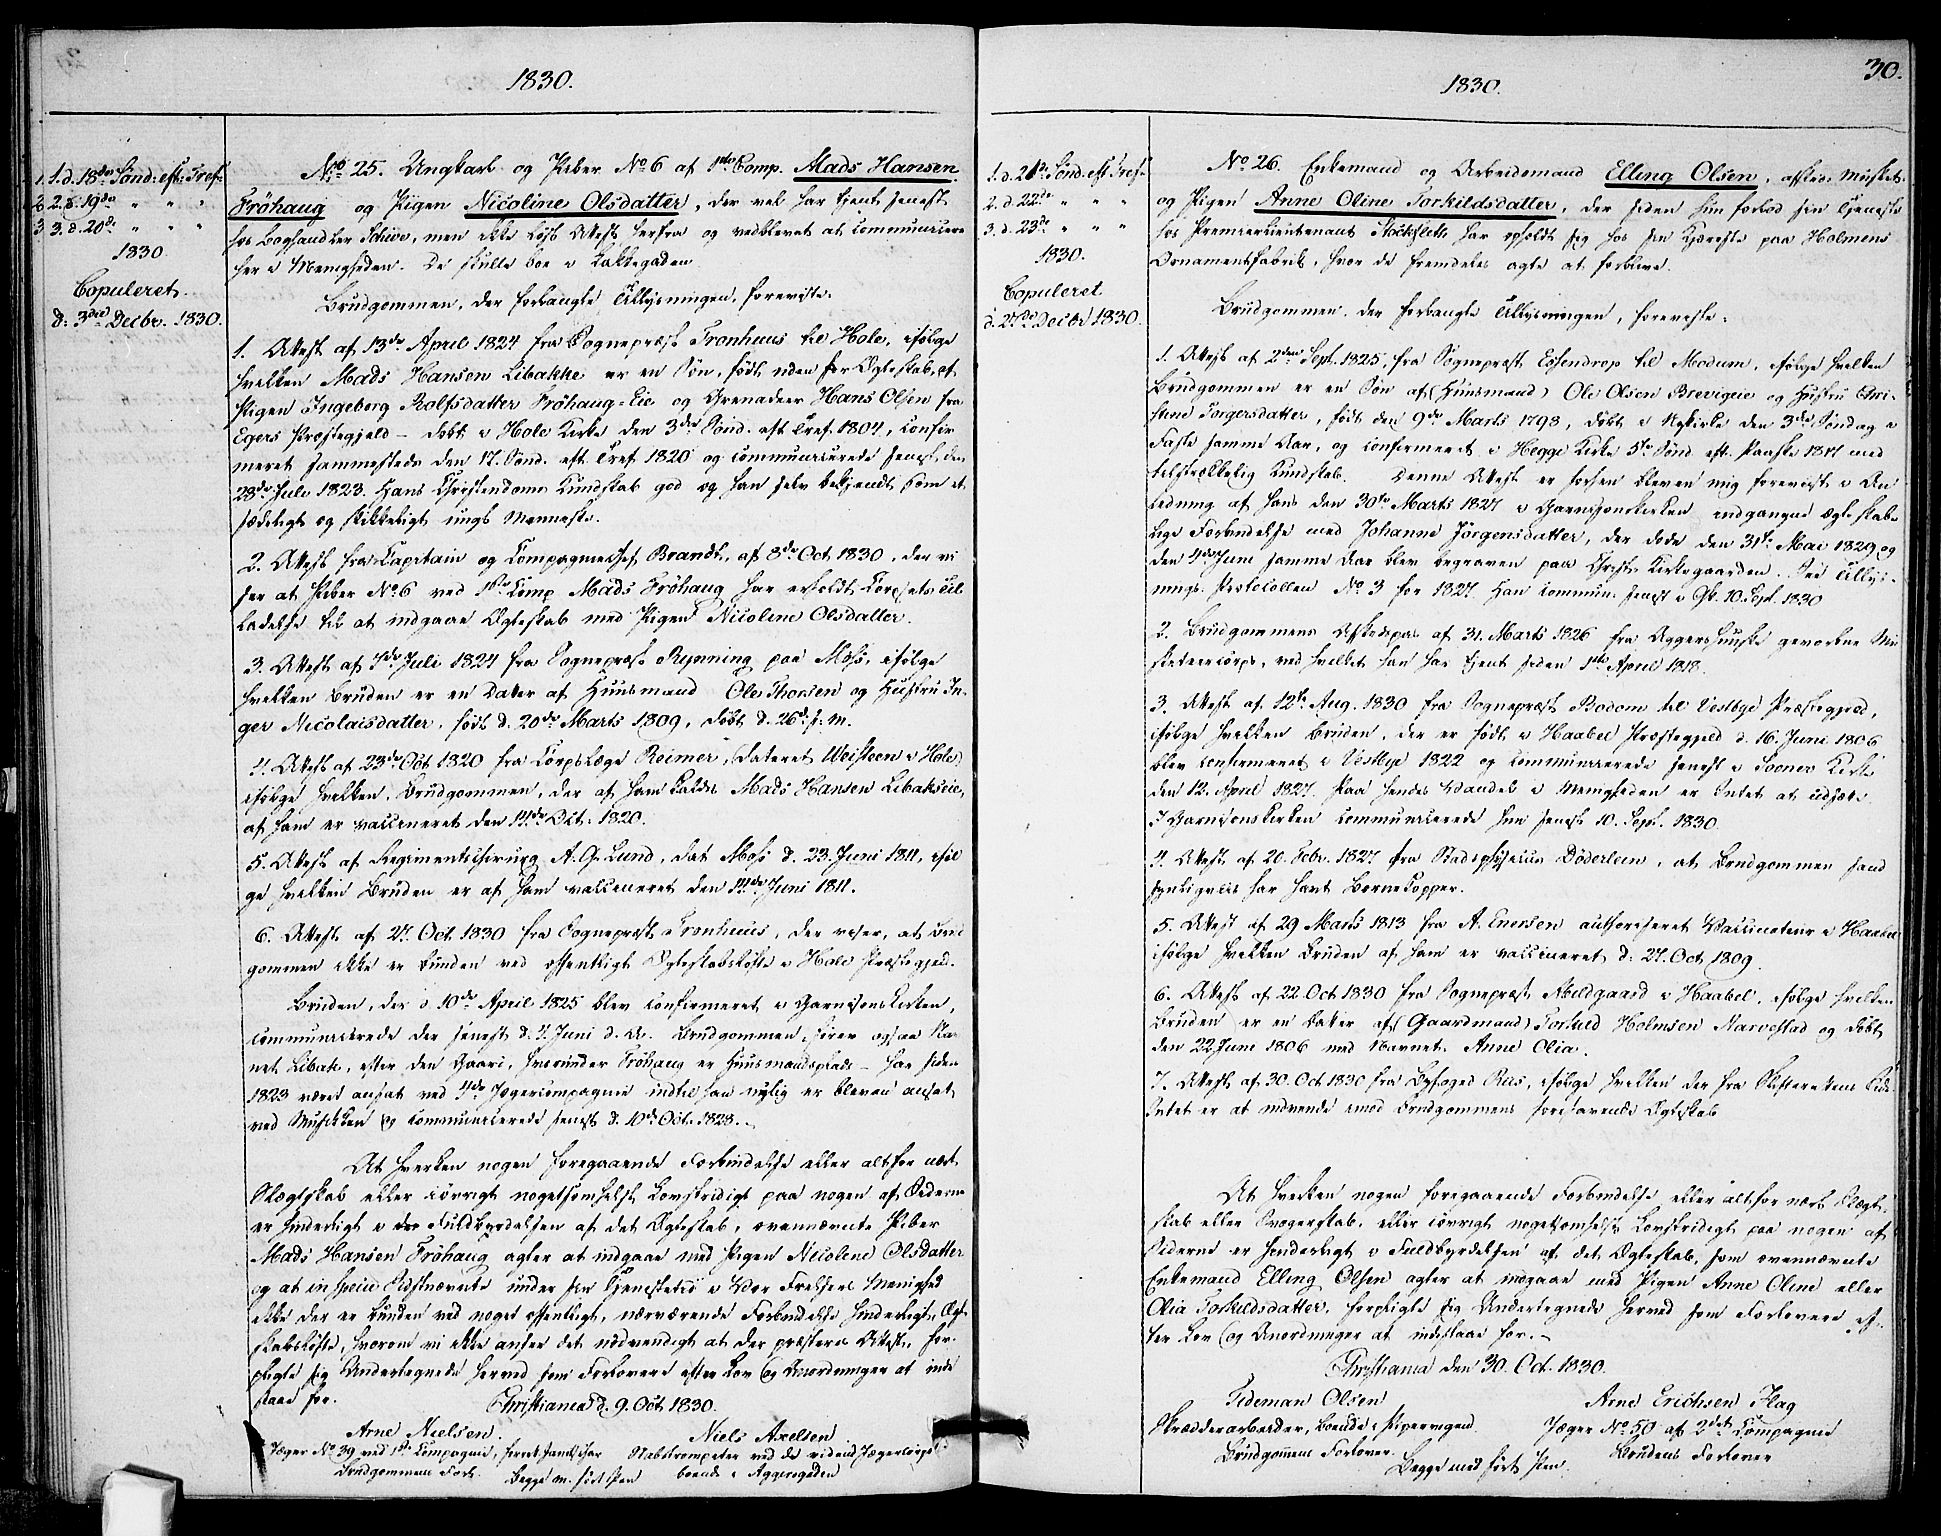 1830.
1. 1. d. 18de Sönd: eft: Tref:
2. 2. d. 19de " " "
3. 3. d. 20de " " "
1830
Copuleret
d: 3die Decbr. 1830.
No 25. Ungkarl og Piber No 6 af 1ste Comp. Mads Hansen
Fröhaug og Pigen Nicoline Olsdatter, der vel har tjent senest
hos Boghandler Schive, men ikke löst Attest herfra og vedblevet at communicere
her i Menigheden. De skulle boe i Rakkegaden
Brudgommen, der forlangte Tillysningen, foreviste:
1. Attest af 13de April 1824 fra Sognepræst Tronhuus til Hole, ifölge
hvilken Mads Hansen Libakke er en Sön, födt uden for Ægteskab, af
Pigen Ingeborg Rolfsdatter Fröhaug-Eie og Grenadeer Hans Olsen fra
Egers Præstegjeld - döbt i Hole Kirke den 3die Sönd. eft Tref 1804, confir
meret sammesteds den 17. Sönd. eft. Tref 1820 og communicerede senest den
28de Juli 1823. Hans Christendoms Kundskab god og han selv bekjendt som et
sædeligt og skikkeligt ungt Menneske.
2. Attest fra Capitain og Compagniechef Brandt, af 8de Oct 1830, der vi
ser at Piber No 6 ved 1ste Comp Mads Fröhaug har erholdt Corpsets Til
ladelse til at indgaae Ægteskab med Pigen Nicoline Olsdatter.
3. Attest af 7de Juli 1824 fra Sognepræst Rynning paa Moss, ifölge
hvilken Bruden er en Datter af Huusmand Ole Thorsen og Hustru In-
ger Nicolaisdatter, födt d. 20de Marts 1809, döbt d. 26de s. m.
4. Attest af 23de Oct 1820 fra Corpslæge Reimer, (dateret Weisteen i Hole)
ifölge hvilken Brudgommen, der af ham kaldes Mads Hansen Libakeie,
af ham er vaccineret den 14de Oct. 1820.
5. Attest af Regimentschirurg A. G. Lund, dat Moss d. 23. Juni 1811, iföl
ge hvilken Bruden er af ham vaccineret den 14de Juni 1811.
6. Attest af 27. Oct. 1830 fra Sognepræst Tronhuus, der viser, at Brud
gommen ikke er bunden ved offentligt Ægteskabslöfte i Hole Præstegjeld.
Bruden, der d. 10de April 1825 blev confirmeret i Garnisonskirken,
communicerede der senest d. 4. Juni d. A. Brudgommen förer ogsaa Nav
net Libak, efter den Gaard, hvorunder Fröhaug er Huusmandsplads - har siden
1823 været ansat ved 4de Jægercompagnie indtil han nylig er bleven ansat
ved Musikken og communicerede senest d. 10de Oct. 1828.
At hverken nogen foregaaende Forbindelse eller altfor nært
Slægtskab eller iövrigt nogetsomhelst Lovstridigt paa nogen af Siderne
er hinderligt i Fuldbyrdelsen af det Ægteskab, ovennævnte Piber
Mads Hansen Fröhaug agter at indgaae med Pigen Nicoline Olsdatter
og at in specie Sidstnævnte under sin Tjenestetid i Vor Frelsers Menighed
ikke der er bunden ved noget offentligt, nærværende Forbindelse hinderligt, Ægte
skabslöfte, hvorom vi ikke anser det nödvendigt at der præsteres Attest, for-
pligte sig Undertegnede herved som Forlovere efter Lov og Anordninger at inde
staae for.
Christiania d. 9. Oct 1830.
Arne Nielsen
Jæger No 39 ved 1ste Compagnie,
Brudgommens Forl.
Niels Axelsen
Stabstrompeter ved de ridende Jægercorps
boende i Aggersgaden
Begge m. fört Pen
30.
1830.
1. d. 21de Sönd. eft Tref
2. d. 22de " " "
3. d. 23de " " "
1830.
Copuleret
d. 27de Decbr 1830.
No 26. Enkemand og Arbeidsmand Elling Olsen, afsked. Musket:
og Pigen Anne Oline Torkildsdatter, der siden hun forlod sin Tjeneste
hos Premierlieutenant Stockfleth har opholdt sig hos sin Kjæreste paa Holmens
Ornamentfabrik, hvor de fremdeles agte at forblive.
Brudgommen, der forlangte Tillysningen, foreviste:
1. Attest af 2den Sept. 1825, fra Sognepræst Essendrop til Modum, ifölge hvilken
Brudgommen er en Sön af (Huusmand) Ole Olsen Brevigeie og Hustru Chri-
stine Torgersdatter, födt den 9de Marts 1798, döbt i Nykirke den 3de Söndag i
Faste samme Aar, og confirmeret i Hegge Kirke 5te Sönd. eft. Paaske 1817 med
tilstrækkelig Kundskab. Denne Attest er forhen bleven mig forevist i An
ledning af hans den 30te Marts 1827 i Garnisonskirken indgangne ægteskabe
lige Forbindelse med Johanne Jörgensdatter, der döde den 31te Mai 1829 og
den 4de Juni samme Aar blev begraven paa Christ: Kirkegaarden. See Tillys-
nings-Protocollen No 3 for 1827. Han commun: senest i Gk. 10. Sept. 1830
2. Brudgommens Afskedspas af 31. Marts 1826 fra Aggershuuske gevorbne Mu
sketeercorps, ved hvilket han har tjent siden 1ste April 1818.
3. Attest af 12te Aug. 1830 fra Sognepræst Bodom til Vestbye Præstegjeld,
ifölge hvilken Bruden, der er födt i Haabel Præstegjeld d. 16. Juni 1806
blev confirmeret i Vestbye 1822 og communicerede senest i Soner Kirke
den 12. April 1827. Paa hendes Vandel i Menigheden er Intet at udsætte.
I Garnisonskirken communicerede hun senest 10. Sept. 1830
4. Attest af 20. Febr. 1827 fra Stadsphysicus Döderlein, at Brudgommen sand
synligviis har havt Börnekopper.
5. Attest af 29 Marts 1813 fra A. Enersen authoriseret Vaccinateur i Haabel
ifölge hvilken Bruden af ham er vaccineret d: 27. Oct 1809.
6. Attest af 22 Oct 1830 fra Sognepræst Abildgaard i Haabel, ifölge hvilken
Bruden er en Datter af (Gaardmand) Torkild Holmsen Narvestad og döbt
den 22 Juni 1806 med Navnet Anne Olia.
7. Attest af 30. Oct 1830 fra Byfoged Riis, ifölge hvilken der fra Skifterettens Side
Intet er at indvende imod Brudgommens forehavende Ægteskab
At hverken nogen foregaaende Forbindelse eller altfor nært Slægt-
skab eller Svogerskab, eller iövrigt nogetsomhelst Lovstridigt paa nogen af
Siderne er hinderligt i Fuldbyrdelsen af det Ægteskab, som ovennævnte
Enkemand Elling Olsen agter at indgaae med Pigen Anne Oline eller
Olia Torkildsdatter, forpligte sig Undertegnede herved som Forlovere ef-
ter Lov og Anordninger at indestaae for.-
Christiania den 30. Oct. 1830.
Tideman Olsen
Skrædderarbeider, boende i Pipervigen
Brudgommens Forlover
Arne Erichsen Flag
Jæger No 50 af 2det Compagnie
Brudens Forlover
Begge med fört Pen.